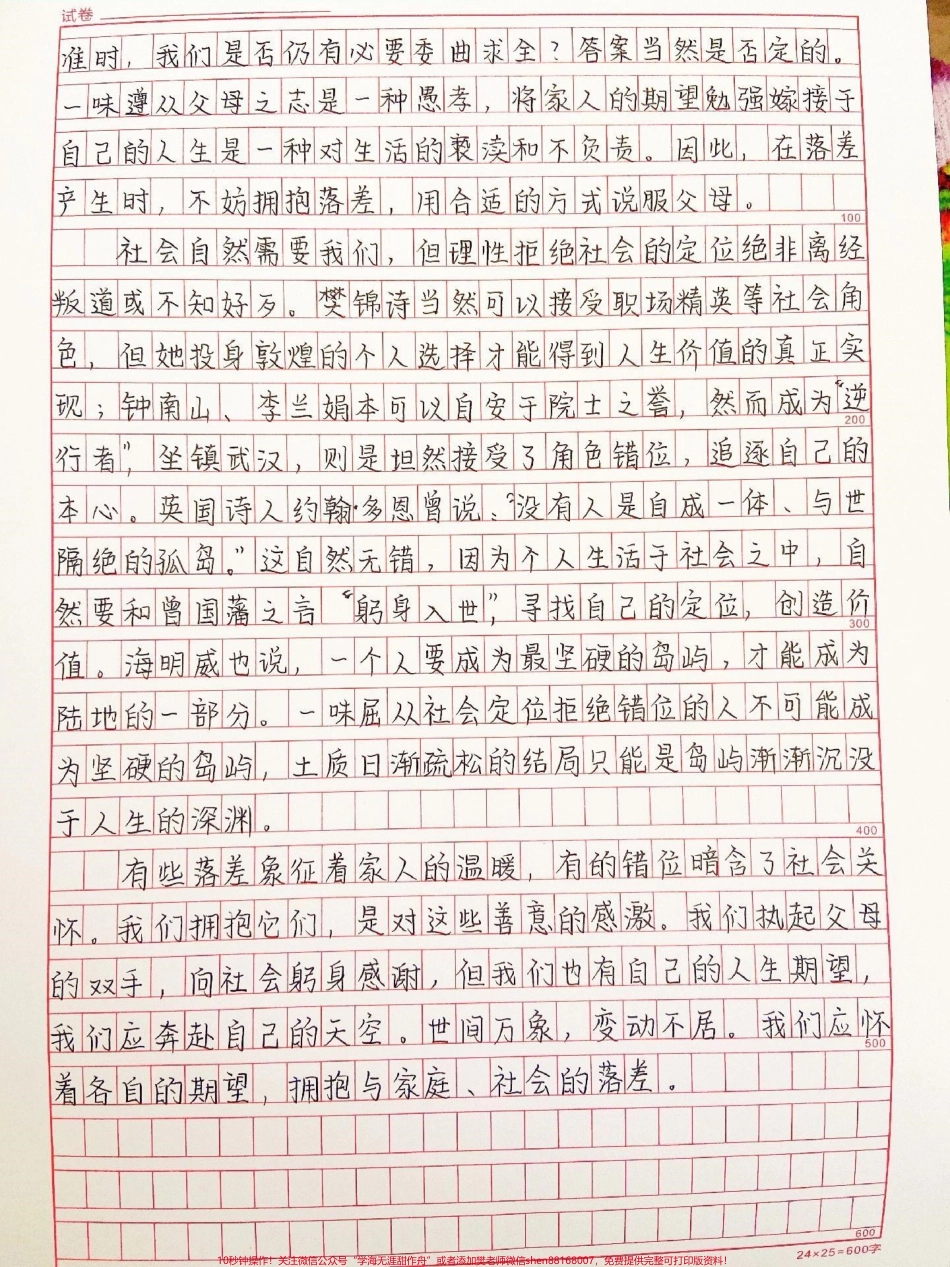 试卷
准时，我们是否仍有必要委曲求全？答案当然是否定的。
一味遵从父母之志是一种愚孝，将家人的期望勉强嫁接于
自己的人生是一种对生活的亵渎和不负责。因此，在落差
产生时，不妨拥抱落差，用合适的方式说服父母。
100
社会自然需要我们，但理性拒绝社会的定位绝非离经
叛道或不知好歹。樊锦诗当然可以接受职场精英等社会角
色，但她投身敦煌的个人选择才能得到人生价值的真正实
现；钟南山、李兰娟本可以自安于院士之誉，然而成为“逆
200
行者”，坐镇武汉，则是坦然接受了角色错位，追逐自己的
本心。英国诗人约翰·多恩曾说：“没有人是自成一体、与世
隔绝的孤岛。”这自然无错，因为个人生活于社会之中，自
然要和曾国藩之言“躬身入世”，寻找自己的定位，创造价
300
值。海明威也说，一个人要成为最坚硬的岛屿，才能成为
陆地的一部分。一味屈从社会定位拒绝错位的人不可能成
为坚硬的岛屿，土质日渐疏松的结局只能是岛屿渐渐沉没
于人生的深渊。
400
有些落差象征着家人的温暖，有的错位暗含了社会关
怀。我们拥抱它们，是对这些善意的感激。我们执起父母
的双手，向社会躬身感谢，但我们也有自己的人生期望，
我们应奔赴自己的天空。世间万象，变动不居。我们应怀
500
着各自的期望，拥抱与家庭、社会的落差。
600
24×25=600字
10秒钟操作！关注微信公众号“学海无涯甜作舟”或者添加樊老师微信shen88168007，免费提供完整可打印版资料！